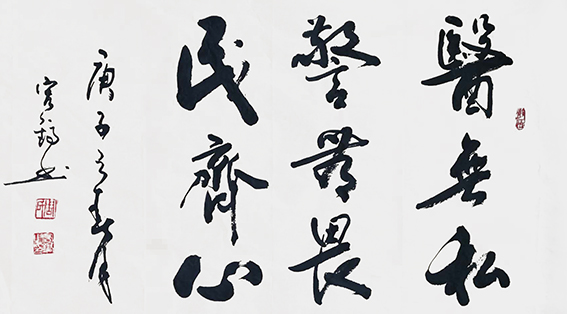 醫無私
警無畏
民齊心
庚子之春月
書